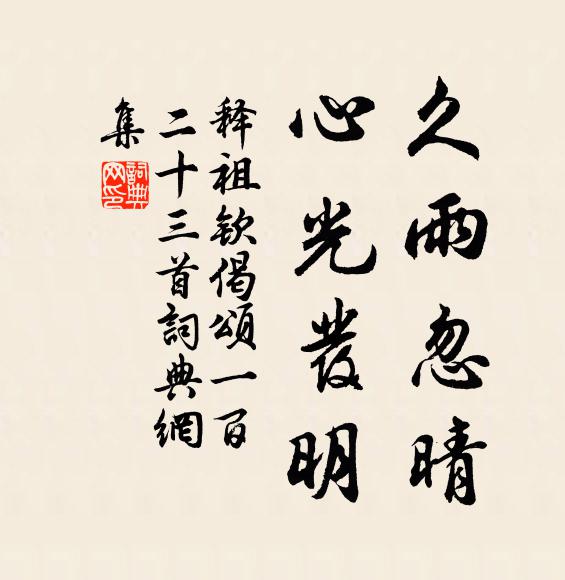 久雨忽晴
心光發明
释祖钦偈頌一百
二十三首詞典網
集
詞典
网印